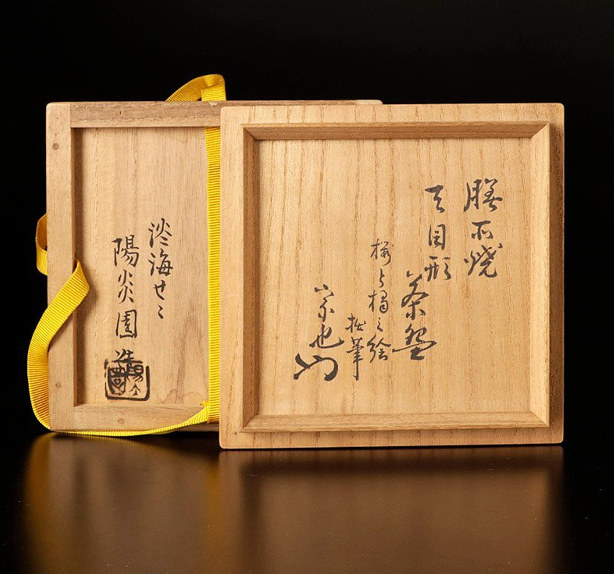 膳所焼
天目形
茶盌
桜と橘之絵
拙筆
宗也
淡海せゝ
陽炎園
造